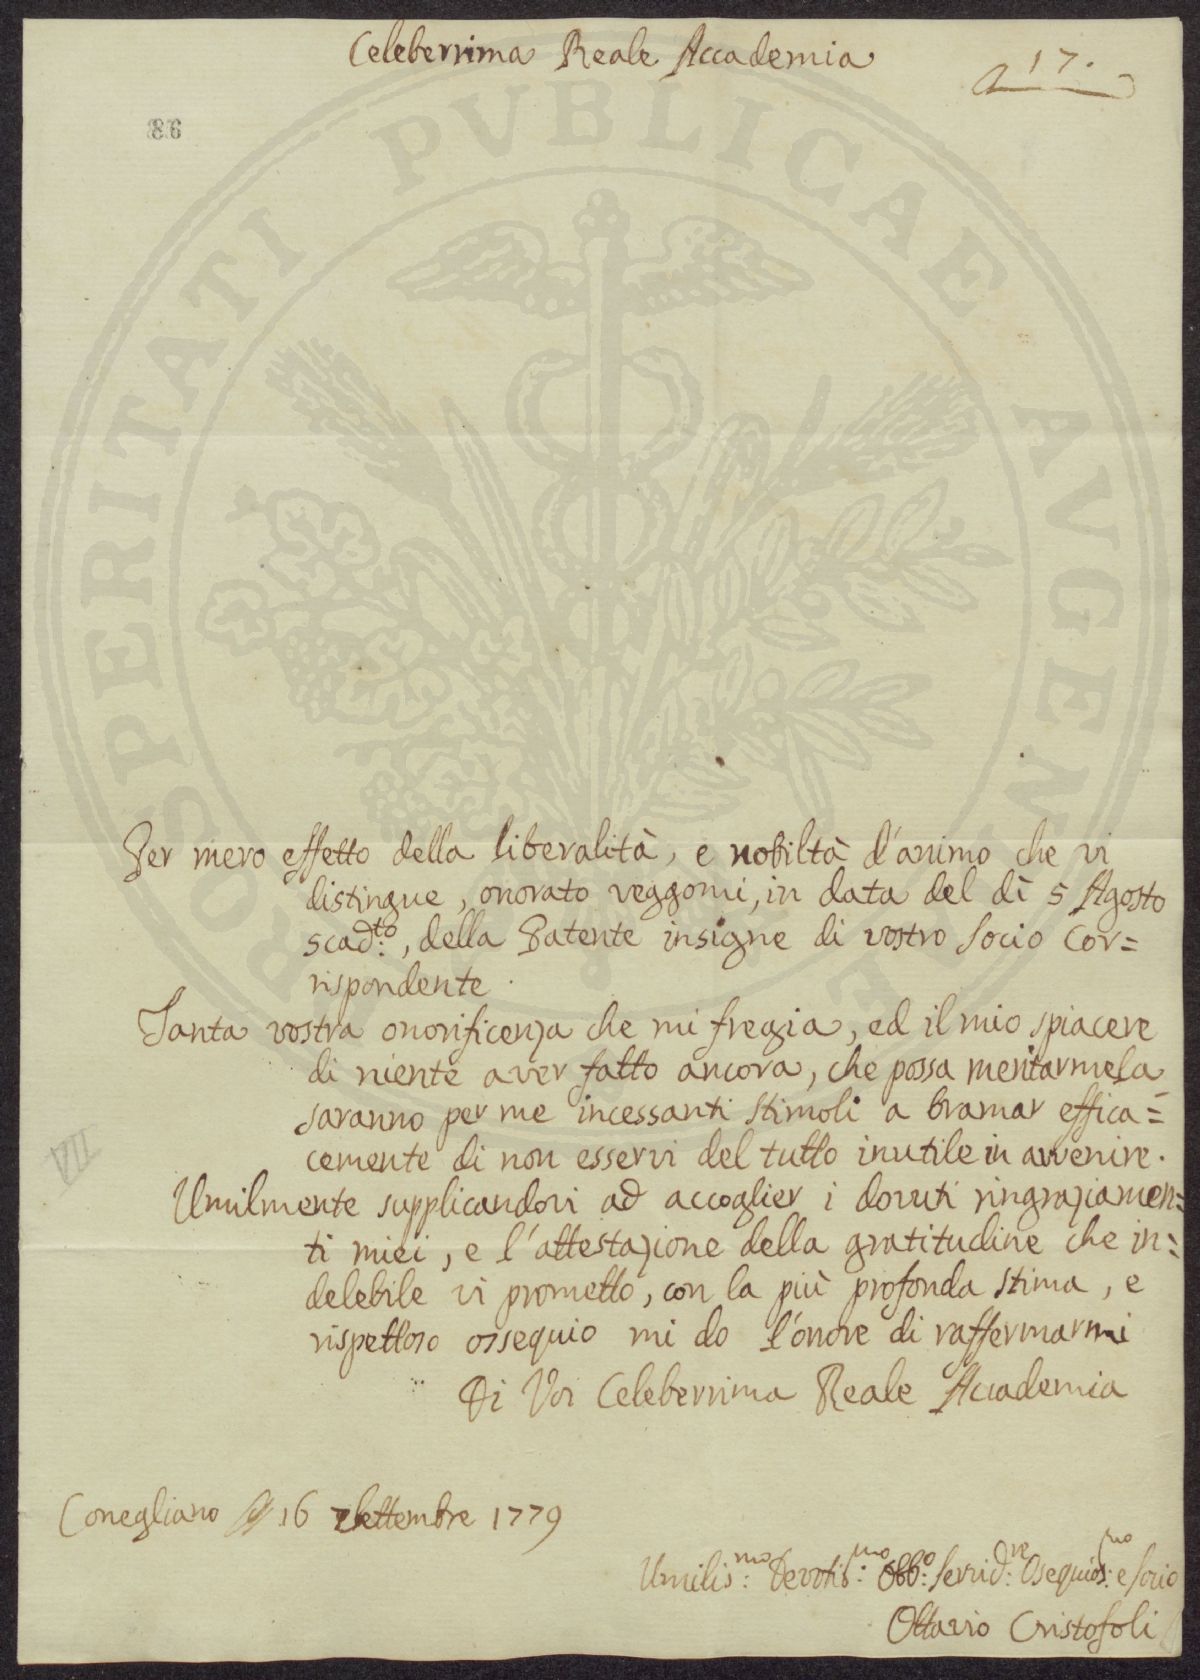 Celeberrima Reale Accademia
17.
86
Per mero effetto della liberalità, e nobiltà d'animo che vi
distingue, onorato veggomi, in data del dì 5 Agosto
scad:to, della Patente insigne di vostro Socio Cor=
rispondente.
Tanta vostra onorificenza che mi fregia, ed il mio spiacere
di niente aver fatto ancora, che possa meritarmela
saranno per me incessanti stimoli a bramar effica=
cemente di non esservi del tutto inutile in avvenire.
Umilmente supplicandovi ad accoglier i dovuti ringraziamen=
ti miei, e l'attestazione della gratitudine che in=
delebile vi prometto, con la più profonda stima, e
rispettoso ossequio mi do l'onore di raffermarmi
Di Voi Celeberrima Reale Accademia
Conegliano 16 Settembre 1779
Umilis:mo Devotis:mo Obb:o Servid:re Osequios:mo e Socio
Ottavio Cristofoli
VII
PROSPERITATI PVBLICAE AVGENDAE